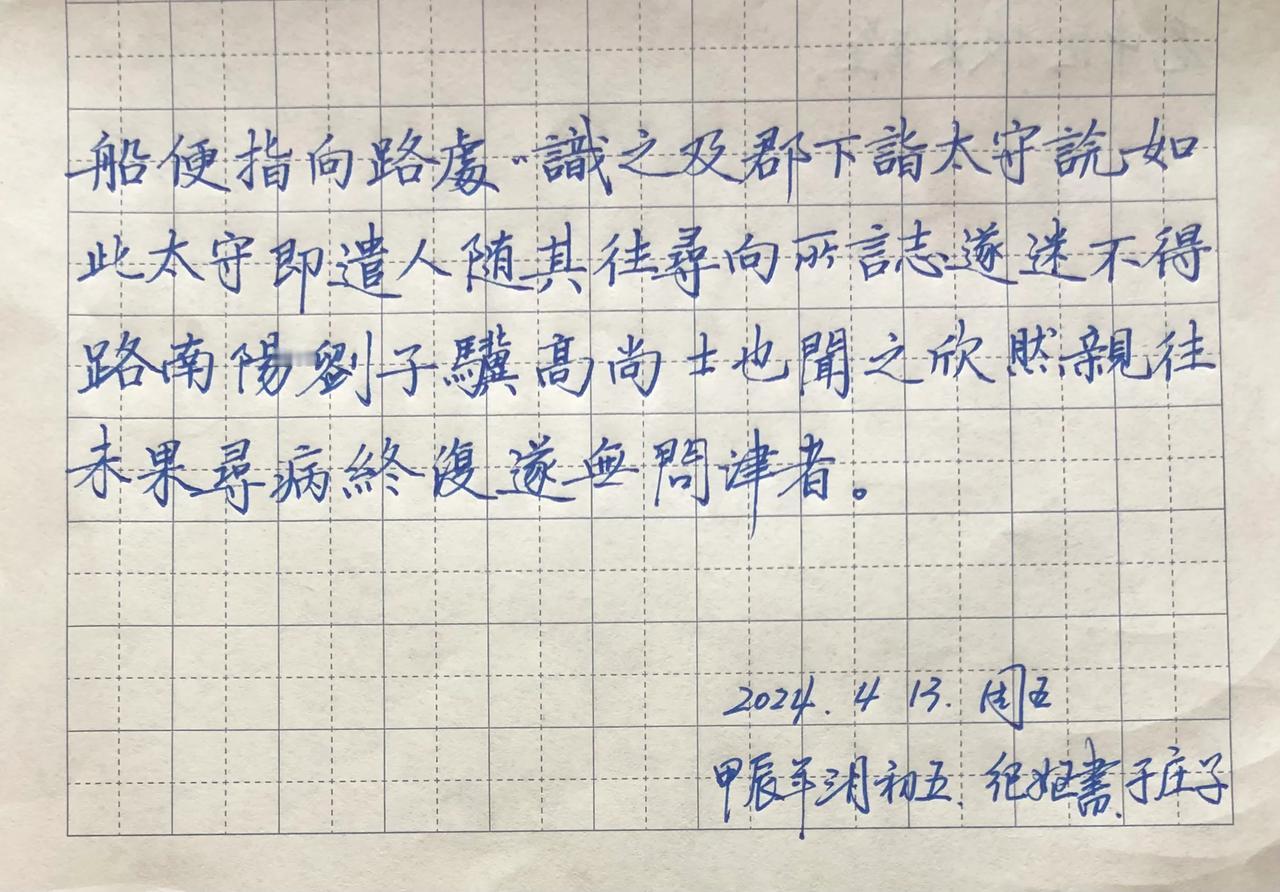 船便指向路處〃識之及郡下詣太守說如
此太守即遣人随其往尋向所言志遂迷不得
路南陽劉子驥高尚士也聞之欣然親往
未果尋病終復遂無問津者。
2024.4 13.周五
甲辰年三月初五.纪姬書.于庄子